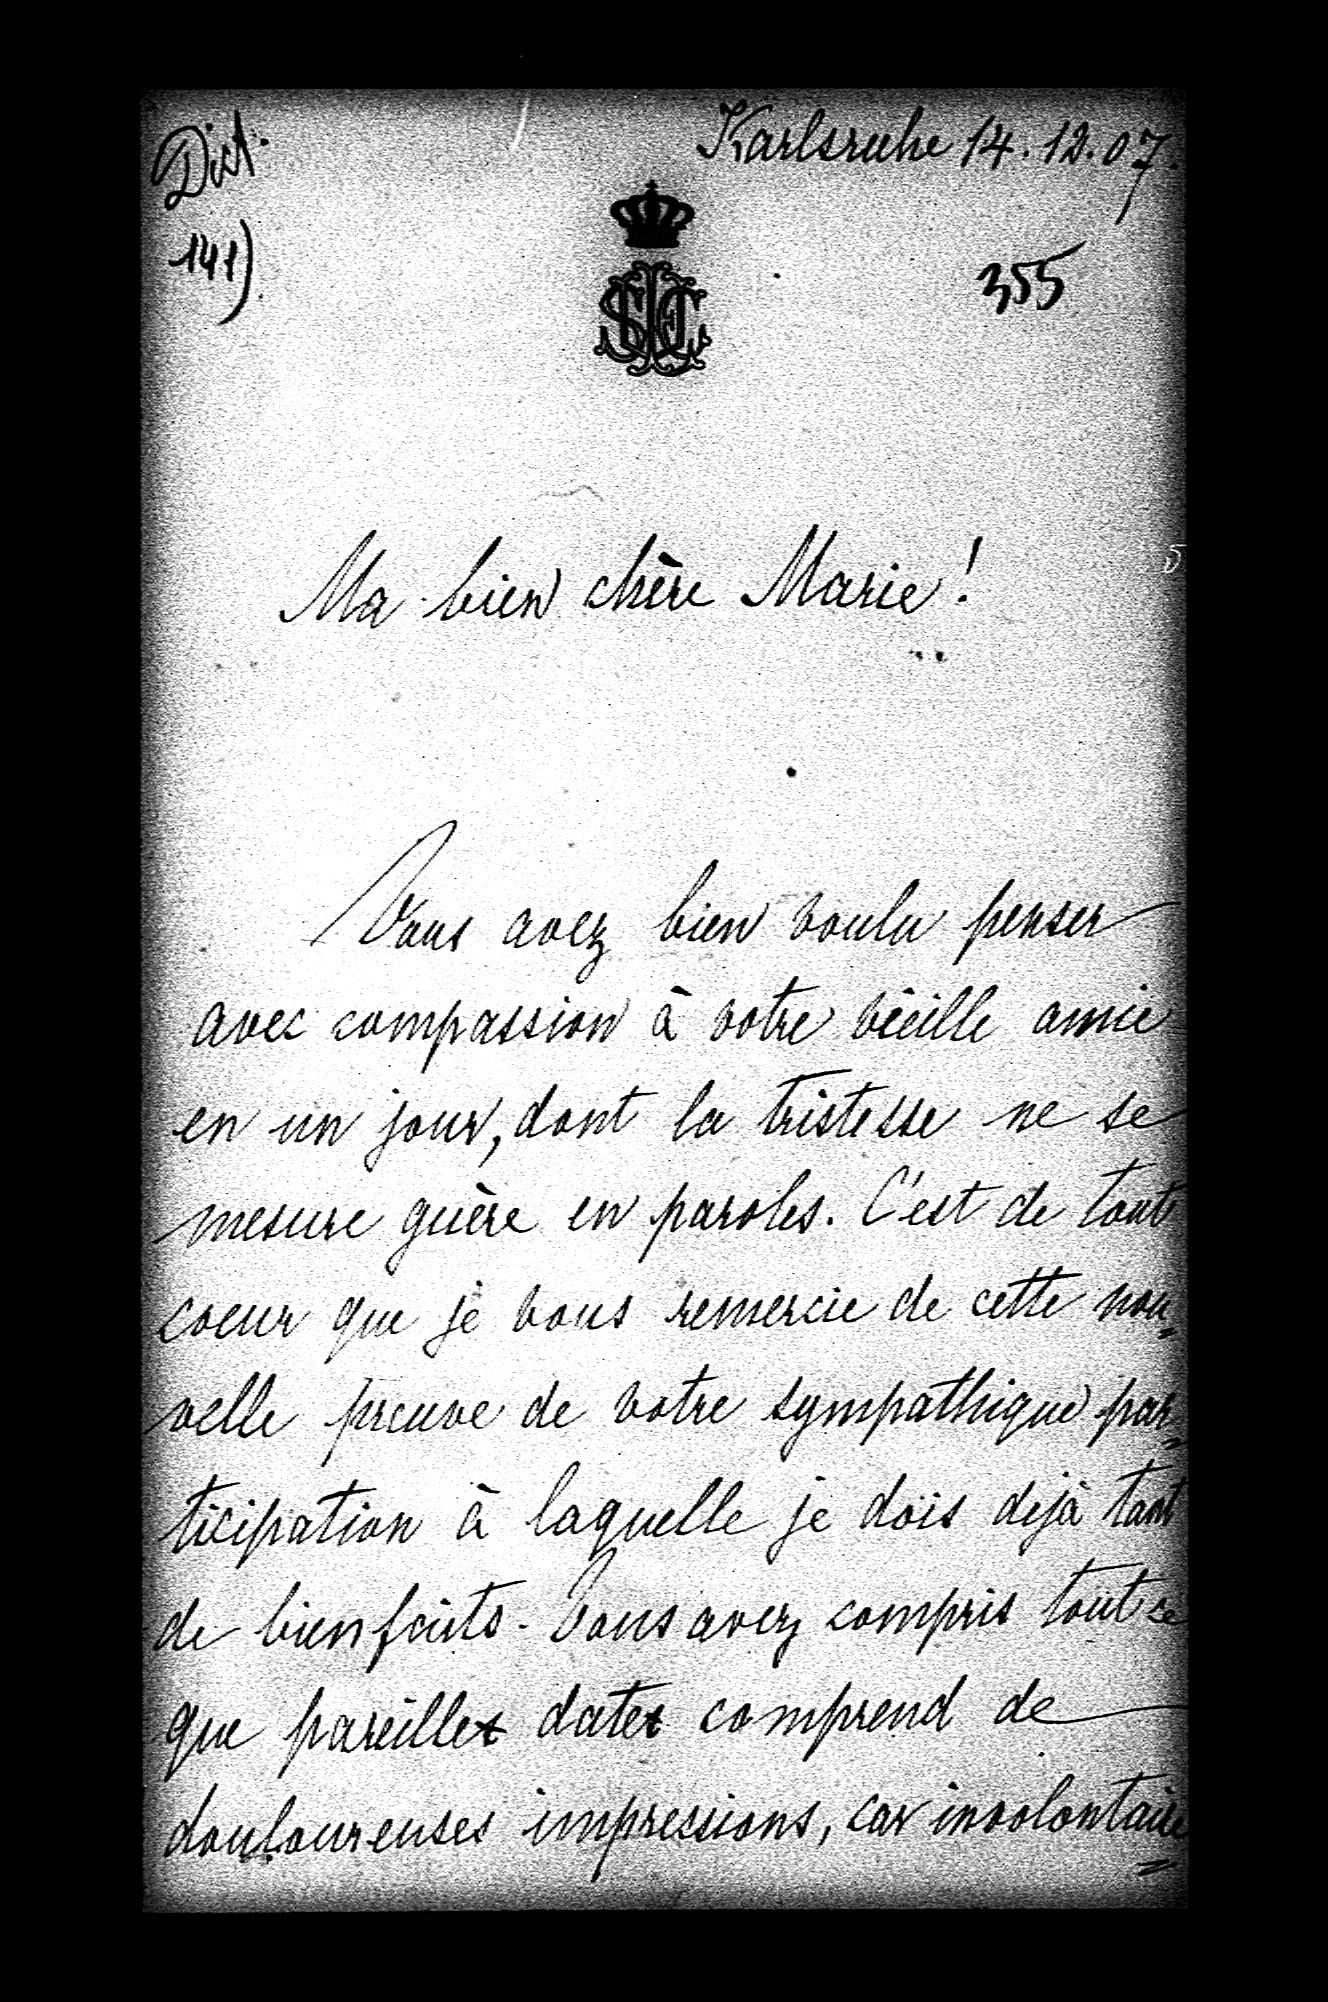 Dict. Karlsruhe 14.12.07.
141) 355
Ma bien chère Marie!
Vous avez bien voulu penser
avec compassion à votre vieille amie
en un jour, dont la tristesse ne se
mesure guère en paroles. C'est de tout
coeur que je vous remercie de cette nou-
velle preuve de votre sympathique par-
ticipation à laquelle je dois dejà tant
de bienfaits. Vous avez compris tout ce
que pareilles dates comprend de
douloureuses impressions, car involontaire=